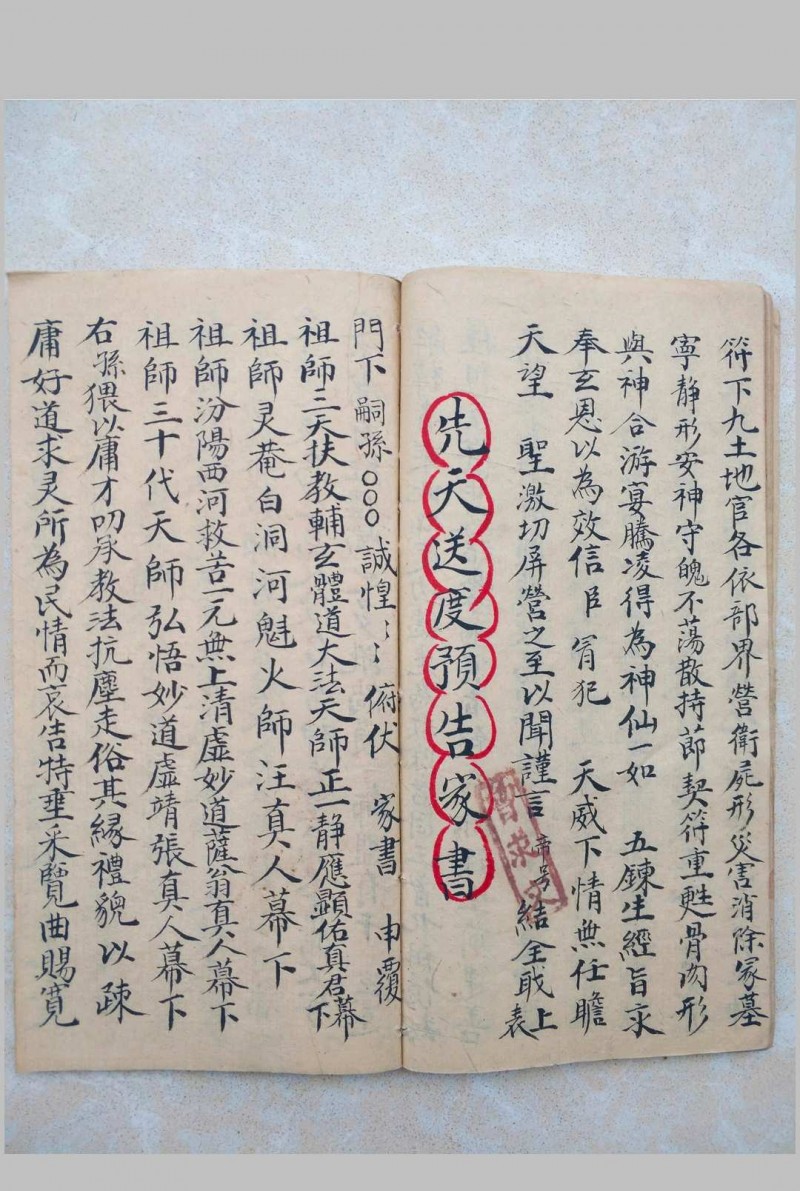 符下九土地官各依部界營衛屍形災害消除冢墓
寧靜形安神守魄不荡散持莭契符重甦骨肉形
與神合游宴騰凌得為神仙一如 五鍊生經旨求
奉玄恩以為效信臣 冐犯 天威下情無任瞻
天望 聖激切屏營之至以聞謹言 帝号 結全戢上表
先天送度預告家書
門下嗣孫○○○ 誠惶〻〻 俯伏 家書 申覆
祖師三天扶教輔玄體道大法天師正一静應顯佑真君幕下
祖師灵菴白洞河魁火師汪真人幕下
祖師汾陽西河救苦一元無上清虛妙道薩翁真人幕下
祖師三十代天師弘悟妙道虛靖張真人幕下
右孫猥以庸才叨承教法抗塵走俗其緣禮貌以疎
庸好道求灵所為民情而哀告特垂采覽曲賜寬